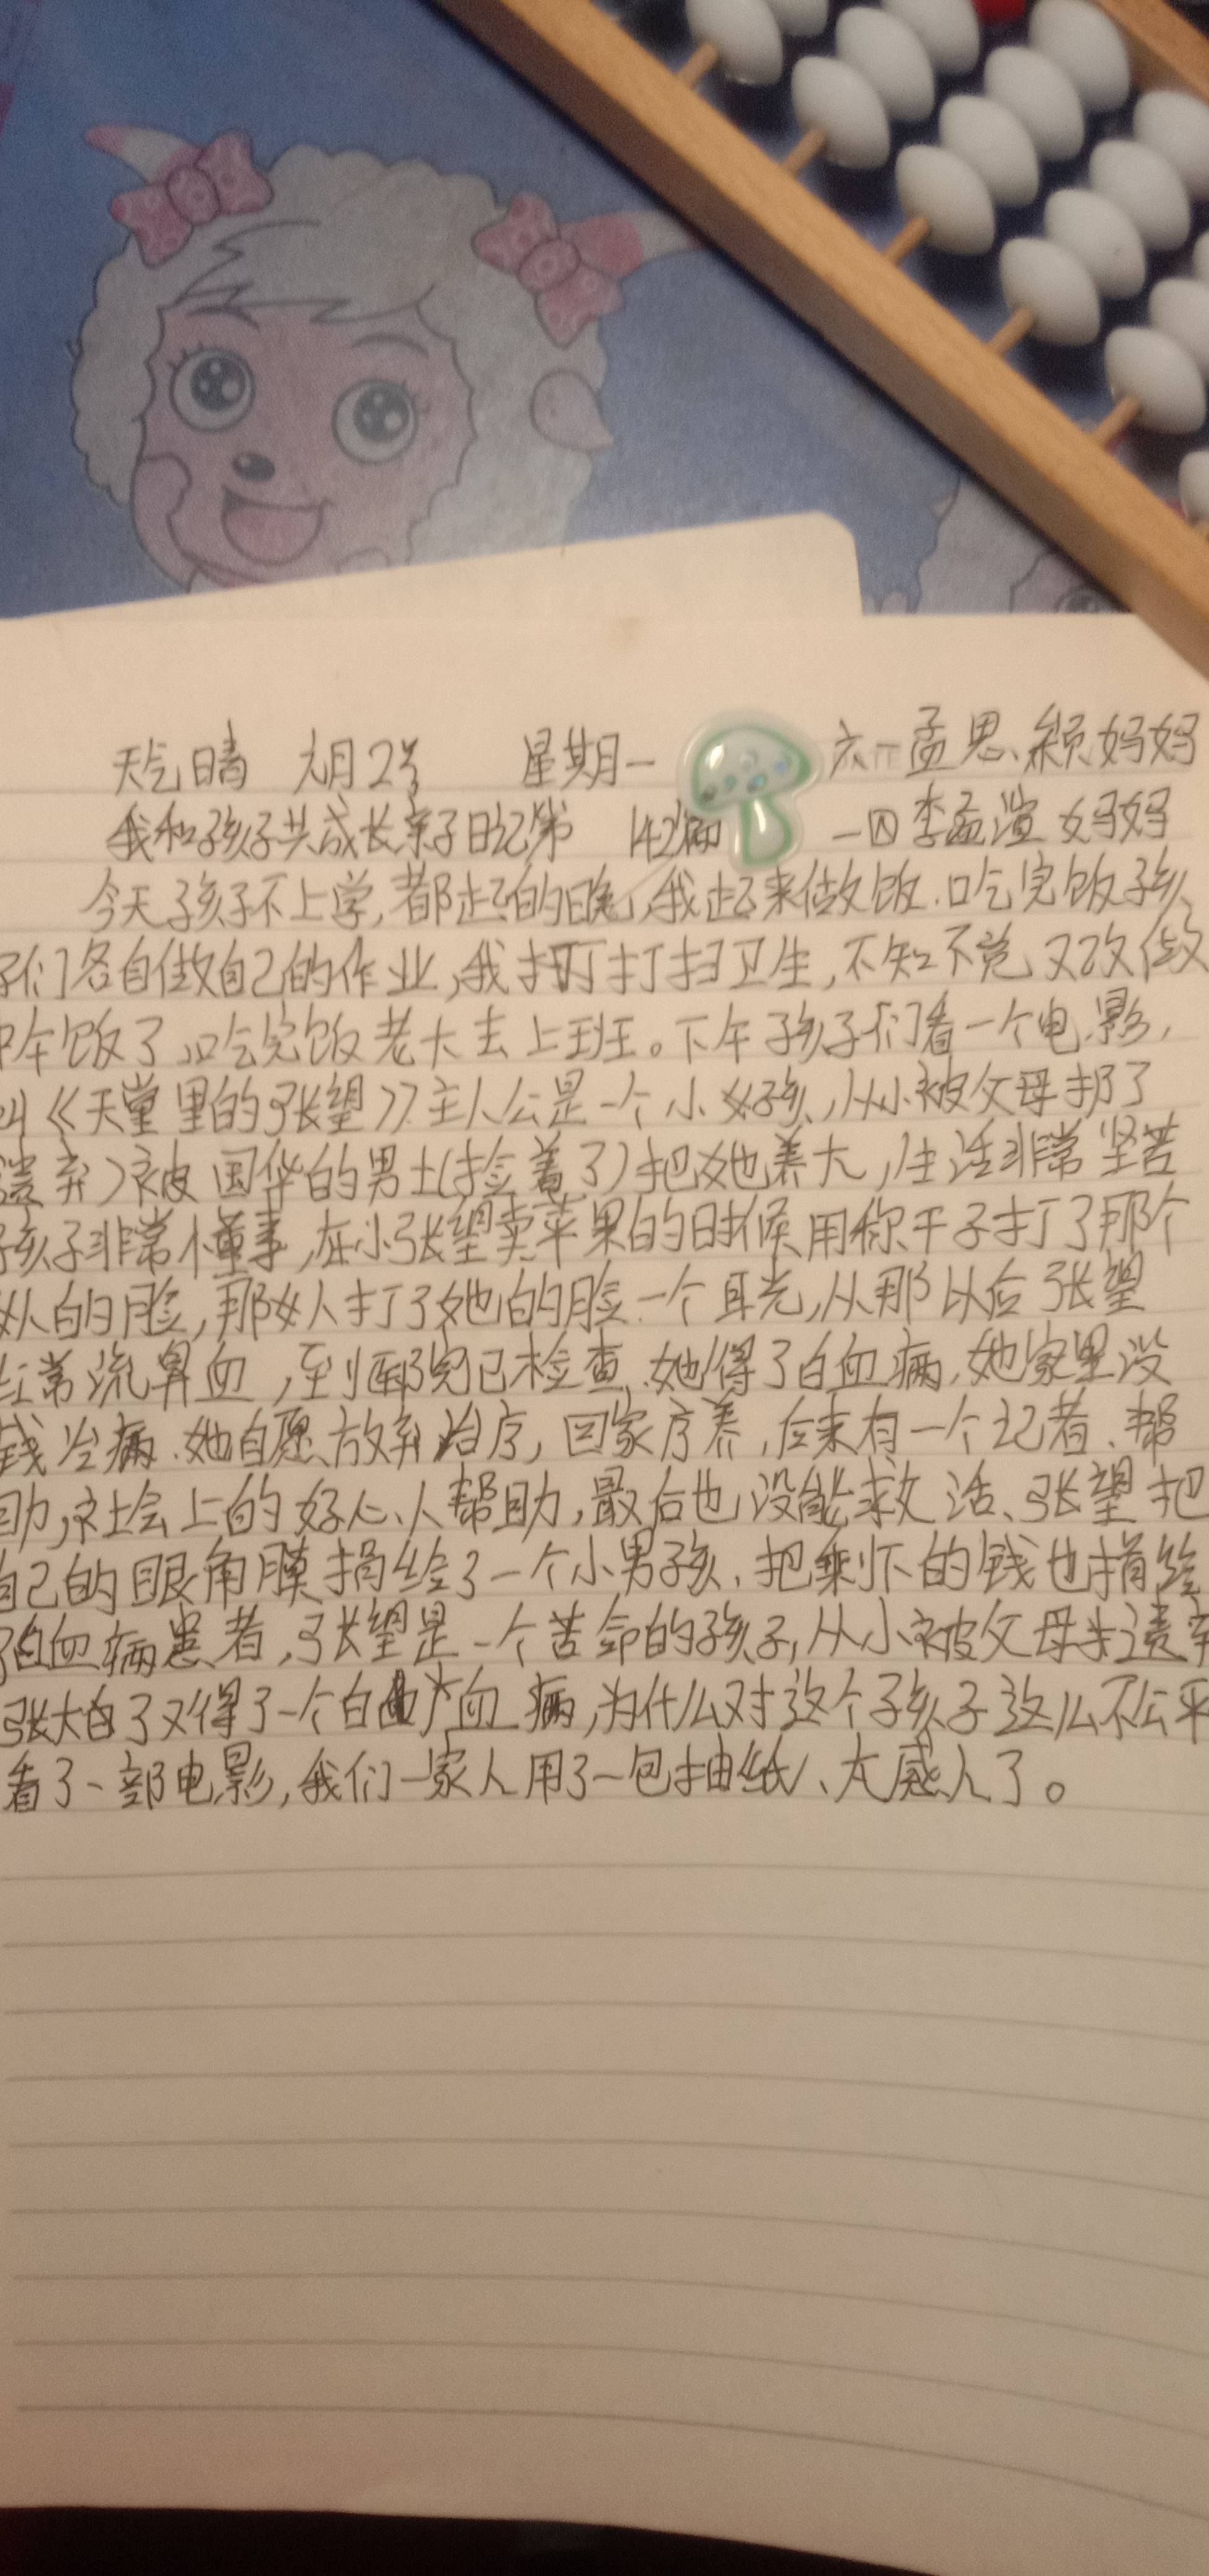 天气晴 九月2号 星期一 六一孟思颖妈妈
我和孩子共成长亲子日记第 142 一四李孟渲妈妈
今天孩子不上学,都起的晚,我起来做饭.吃完饭孩
子们各自做自己的作业,我打打扫卫生,不知不觉又改做
中午饭了,吃完饭老大去上班。下午孩子们看一个电影,
叫《天堂里的张望》主人公是一个小女孩,从小被父母扔了
遗弃)被国华的男士(捡着了)把她养大,生活非常坚苦
孩子非常懂事,在小张望卖苹果的时候用你干子打了那个
女人的脸,那女人打了她的脸一个耳光,从那以后张望
经常流鼻血,到医院已检查.她得了白血病,她家里没
钱治病.她自愿放弃治疗,回家疗养,后来有一个记者、帮
助,社会上的好心人帮助,最后也没能救活、张望把
自己的眼角膜捐给了一个小男孩、把剩下的钱也捐给
了白血病患者,张望是一个苦命的孩子,从小被父母遗弃
张大白了又得了一个白血病,为什么对这个孩子这么不公平
看了一部电影,我们一家人用了一包抽纸、太感人了。